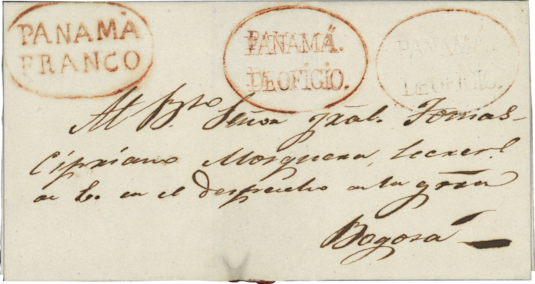 PANAMÁ
FRANCO
PANAMÁ.
DE OFICIO.
PANAMÁ.
DE OFICIO.
Al Bto. Señor Gral. Tomas
Cipriano Mosquera, Secret.
de E. en el despacho de la grra
Bogotá